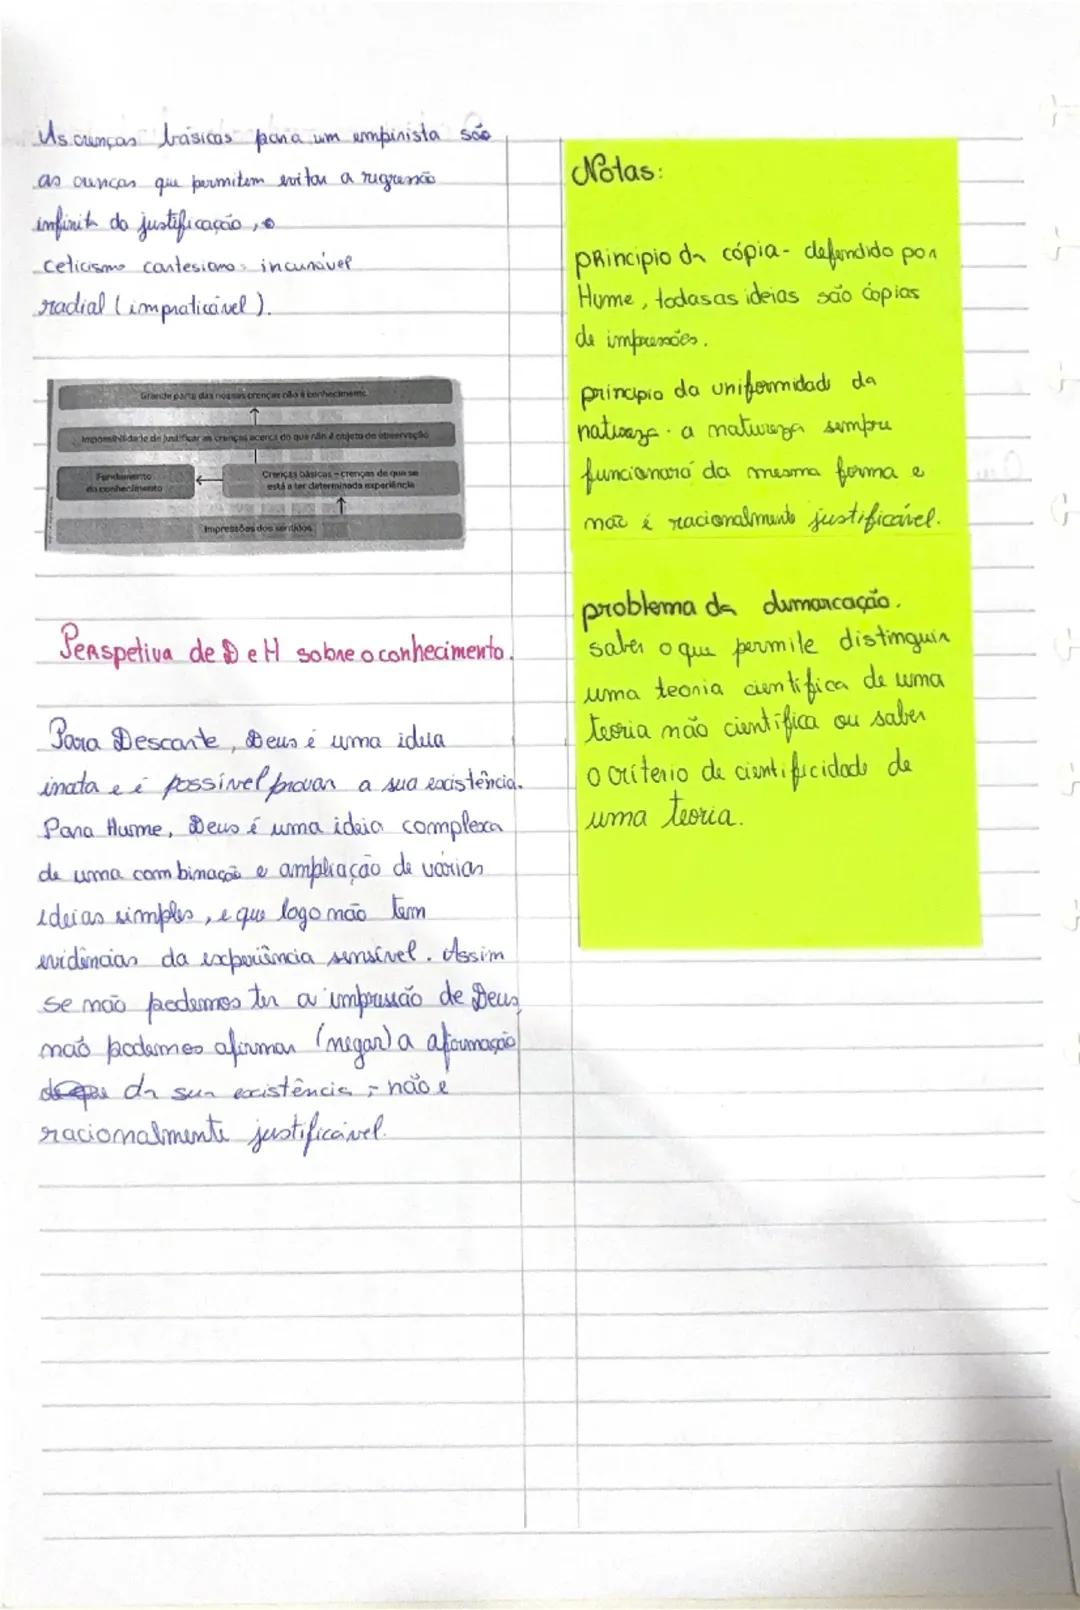 As crenças básicas para um empirista são
as crenças que permitem evitar a regressão
infinita da justificação, o
ceticismo cartesiano - incurável
radial (impraticável).
Grande parte das nossas crenças não é conhecimento
Impossibilidade de justificar as crenças acerca do que não é objeto de observação
Fundamento
do conhecimento
Crenças básicas – crenças de que se
está a ter determinada experiência
Impressões dos sentidos
Perspetiva de D e H sobre o conhecimento.
Para Descarte, Deus é uma ideia
inata e é possível provar a sua existência.
Para Hume, Deus é uma ideia complexa
de uma combinação e ampliação de várias
ideias simples, e que logo não tem
evidências da experiência sensível. Assim
se não podemos ter a impressão de Deus
não podemos afirmar (negar) a afirmação
da sua existência - não é
racionalmente justificável.
Notas:
princípio da cópia - defendido por
Hume, todas as ideias são cópias
de impressões.
princípio da uniformidade da
natureza - a natureza sempre
funcionará da mesma forma e
não é racionalmente justificável.
problema da demarcação.
saber o que permite distinguir
uma teoria científica de uma
teoria não científica ou saber
o critério de cientificidade de
uma teoria.